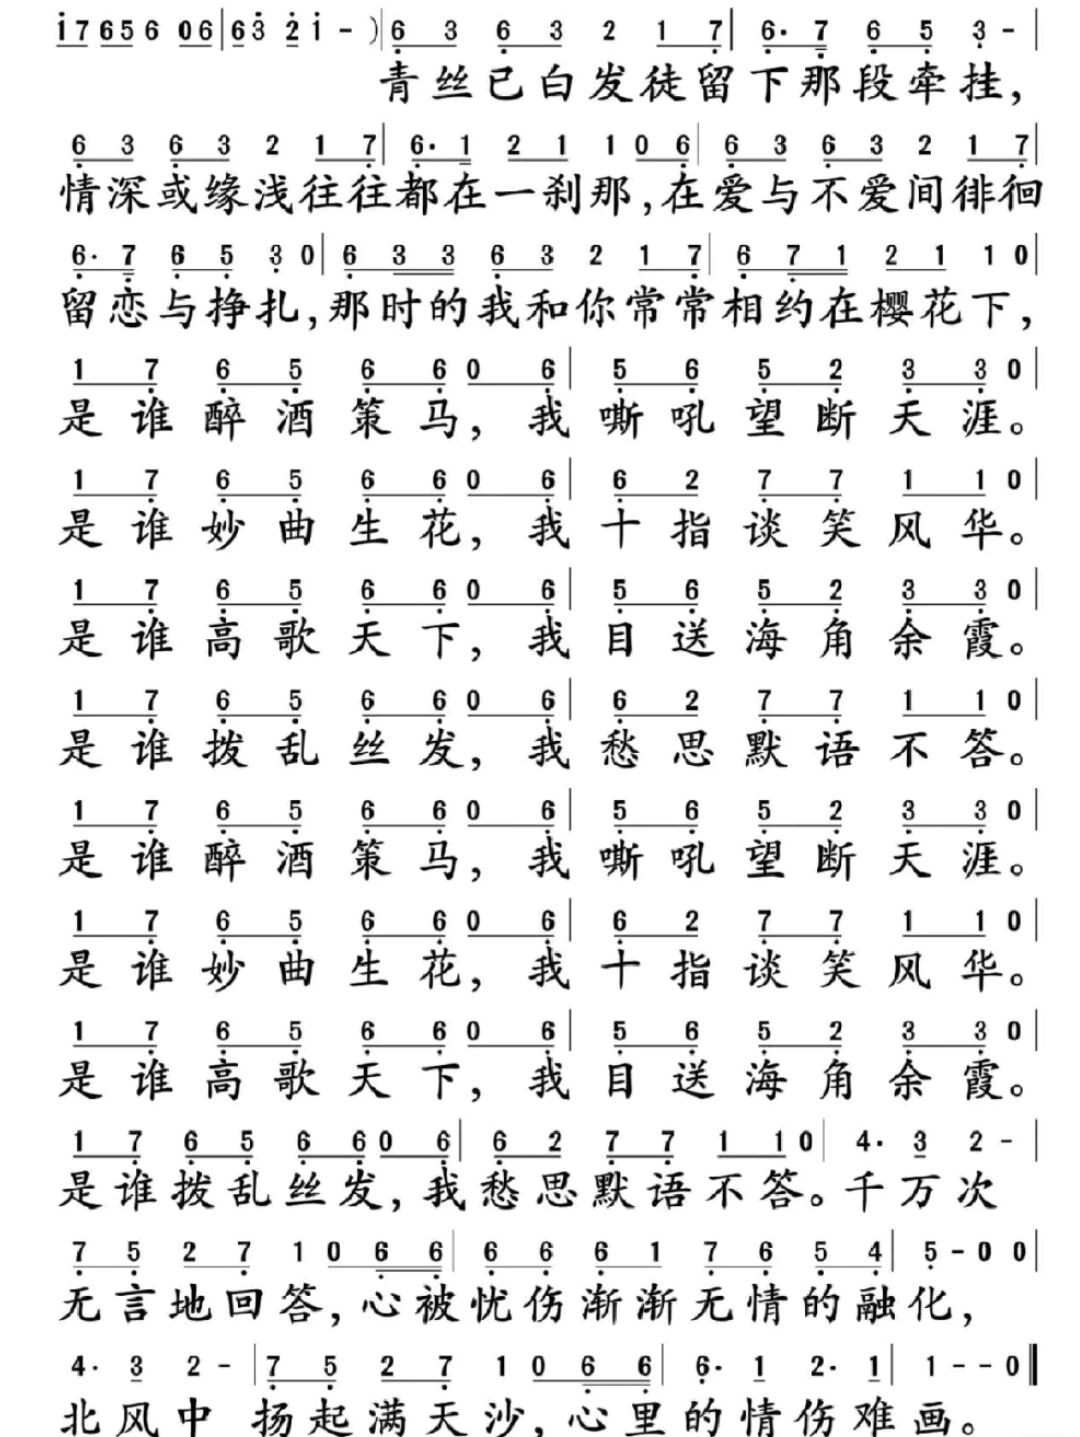 i76560 6|63 2 i - )|6 3 6 3 2 1 7|6· 7 6 5 3 -|
青丝已白发徒留下那段牵挂，
6 3 6 3 2 1 7|6· 1 2 1 1 0 6|6 3 6 3 2 1 7|
情深或缘浅往往都在一刹那，在爱与不爱间徘徊
6· 7 6 5 3 0|6 3 3 6 3 2 1 7|6 7 1 2 1 1 0|
留恋与挣扎，那时的我和你常常相约在樱花下，
1 7 6 5 6 6 0 6|5 6 5 2 3 3 0|
是谁醉酒策马，我嘶吼望断天涯。
1 7 6 5 6 6 0 6|6 2 7 7 1 1 0|
是谁妙曲生花，我十指谈笑风华。
1 7 6 5 6 6 0 6|5 6 5 2 3 3 0|
是谁高歌天下，我目送海角余霞。
1 7 6 5 6 6 0 6|6 2 7 7 1 1 0|
是谁拨乱丝发，我愁思默语不答。
1 7 6 5 6 6 0 6|5 6 5 2 3 3 0|
是谁醉酒策马，我嘶吼望断天涯。
1 7 6 5 6 6 0 6|6 2 7 7 1 1 0|
是谁妙曲生花，我十指谈笑风华。
1 7 6 5 6 6 0 6|5 6 5 2 3 3 0|
是谁高歌天下，我目送海角余霞。
1 7 6 5 6 6 0 6|6 2 7 7 1 1 0|4· 3 2 -|
是谁拨乱丝发，我愁思默语不答。千万次
7 5 2 7 1 0 6 6|6 6 6 1 7 6 5 4|5 - 0 0|
无言地回答，心被忧伤渐渐无情的融化，
4· 3 2 -|7 5 2 7 1 0 6 6|6· 1 2· 1|1 - - 0‖
北风中 扬起满天沙，心里的情伤难画。